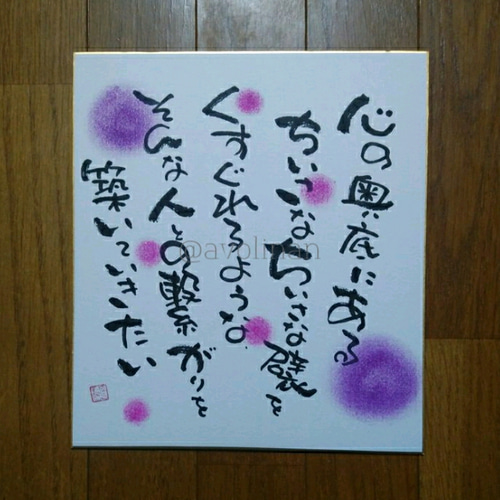 心の奥底にある
ちいさなちいさな襞を
くすぐれるような
そんな人との繋がりを
築いていきたい